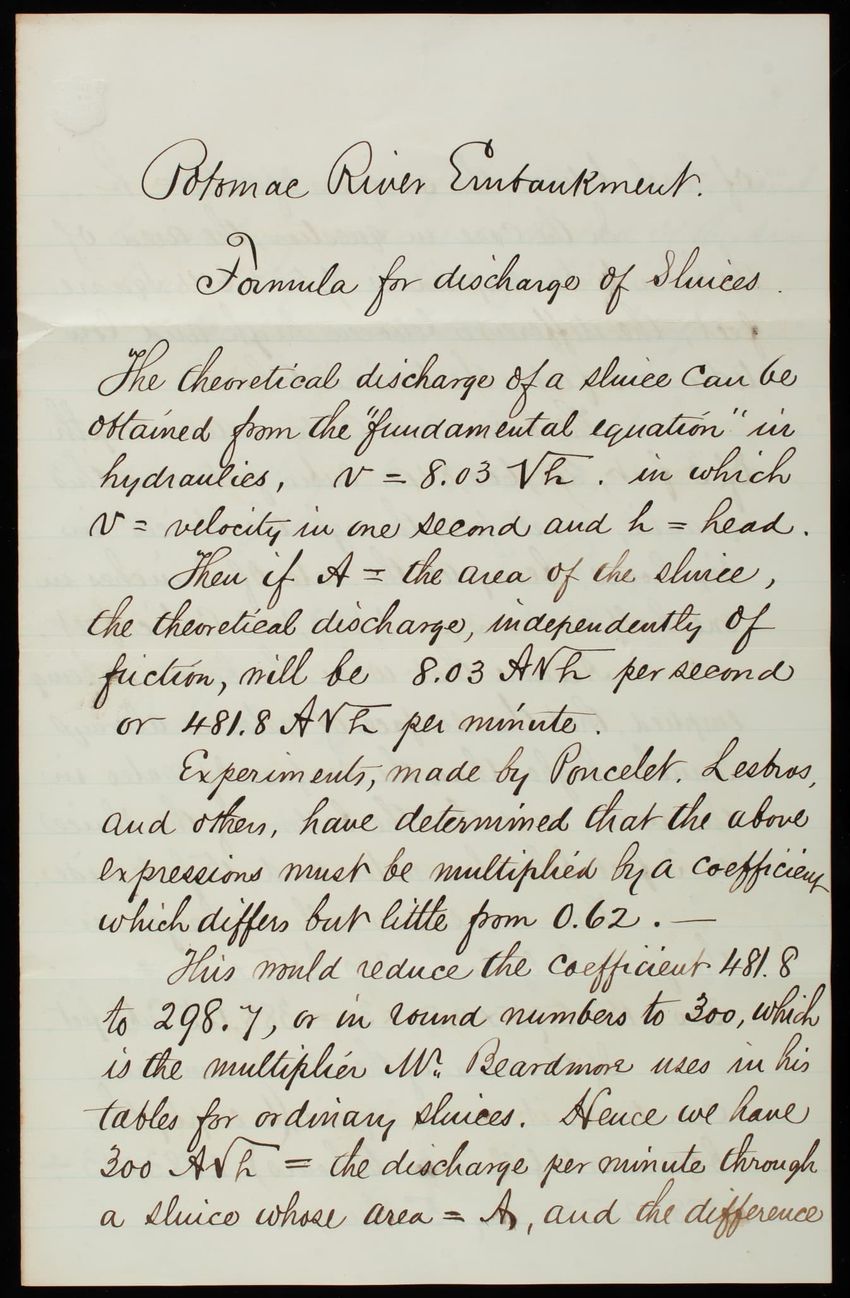 Potomac River Embankment.
Formula for discharge of Sluices.
The theoretical discharge of a sluice can be
obtained from the "fundamental equation" in
hydraulics, v = 8.03 √h. in which
v = velocity in one second and h = head.
Then if A = the area of the sluice,
the theoretical discharge, independently of
friction, will be 8.03 A√h per second
or 481.8 A√h per minute.
Experiments, made by Poncelet. Lesbros,
and others, have determined that the above
expressions must be multiplied by a coefficient
which differs but little from 0.62. —
This would reduce the coefficient 481.8
to 298.7, or in round numbers to 300, which
is the multiplier Mr. Beardmore uses in his
tables for ordinary sluices. Hence we have
300 A√h = the discharge per minute through
a sluice whose area = A, and the difference